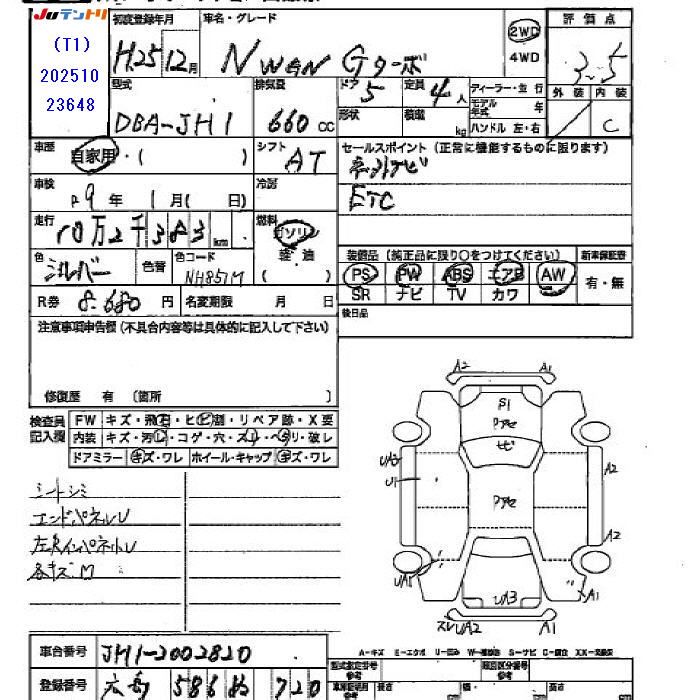 Juテントリ
(T1)
202510
23648
初度登録年月 車名・グレード 評価点
H25 12月 N WGN Gターボ 2WD 3.5
4WD
型式 排気量 ドア 定員 ディーラー・並行 外装 内装
DBA-JH1 660 cc 5 4人 モデル年式 年
形状 積載 kg ハンドル 左・右 C
車歴 自家用・( ) シフト AT セールスポイント(正常に機能するものに限ります)
ナビ
車検 R9年 1月( 日) 冷房 ETC
走行 10万2千383km 燃料 ガソリン
軽・油
( )
装備品(純正品に限り○をつけてください) 新車保証書
色 シルバー 色替 色コード NH851M PS PW ABS エアB AW 有・無
SR ナビ TV カワ
R券 8.680円 名変期限 月 日 後日品
注意事項申告欄(不具合内容等は具体的に記入して下さい)
修復歴 有 〔箇所 〕
検査員記入欄 FW キズ・飛石・ヒビ割・リペア跡・X要
内装 キズ・汚レ・コゲ・穴・スレ・ヘタリ・破レ
ドアミラー キズ・ワレ ホイール・キャップ キズ・ワレ
シートシミ
エンドパネルU
各キズ M
A2 A1
S1
Pアセ
ヒビ
UA3 A2
U1
Pアセ
A2
UA1 A1
UA3
スレUA2 A1
車台番号 JH1-2002820
登録番号 586 720
型式指定番号 類別区分番号
長さ 幅 高さ